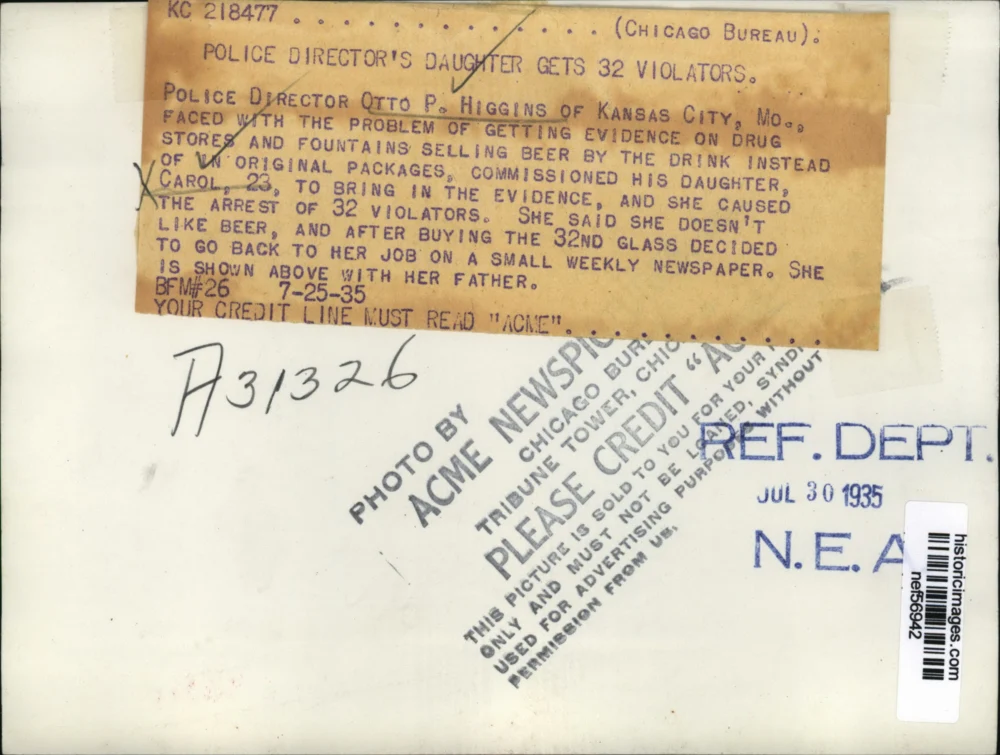 KC 218477 . . . . . . . . . . . . (CHICAGO BUREAU).
POLICE DIRECTOR'S DAUGHTER GETS 32 VIOLATORS.
POLICE DIRECTOR OTTO P. HIGGINS OF KANSAS CITY, MO.,
FACED WITH THE PROBLEM OF GETTING EVIDENCE ON DRUG
STORES AND FOUNTAINS SELLING BEER BY THE DRINK INSTEAD
OF IN ORIGINAL PACKAGES, COMMISSIONED HIS DAUGHTER,
CAROL, 23, TO BRING IN THE EVIDENCE, AND SHE CAUSED
THE ARREST OF 32 VIOLATORS. SHE SAID SHE DOESN'T
LIKE BEER, AND AFTER BUYING THE 32ND GLASS DECIDED
TO GO BACK TO HER JOB ON A SMALL WEEKLY NEWSPAPER. SHE
IS SHOWN ABOVE WITH HER FATHER.
BFM#26 7-25-35
YOUR CREDIT LINE MUST READ "ACME". . . . . . . . . .
A31326
PHOTO BY
ACME NEWSPIC
CHICAGO BUR
TRIBUNE TOWER, CHIC
PLEASE CREDIT "AC
THIS PICTURE IS SOLD TO YOU FOR YOUR
ONLY AND MUST NOT BE LOANED, SYNDI
USED FOR ADVERTISING PURPOSES WITHOUT
PERMISSION FROM US.
REF. DEPT.
JUL 30 1935
N.E.A
historicimages.com
nef56942